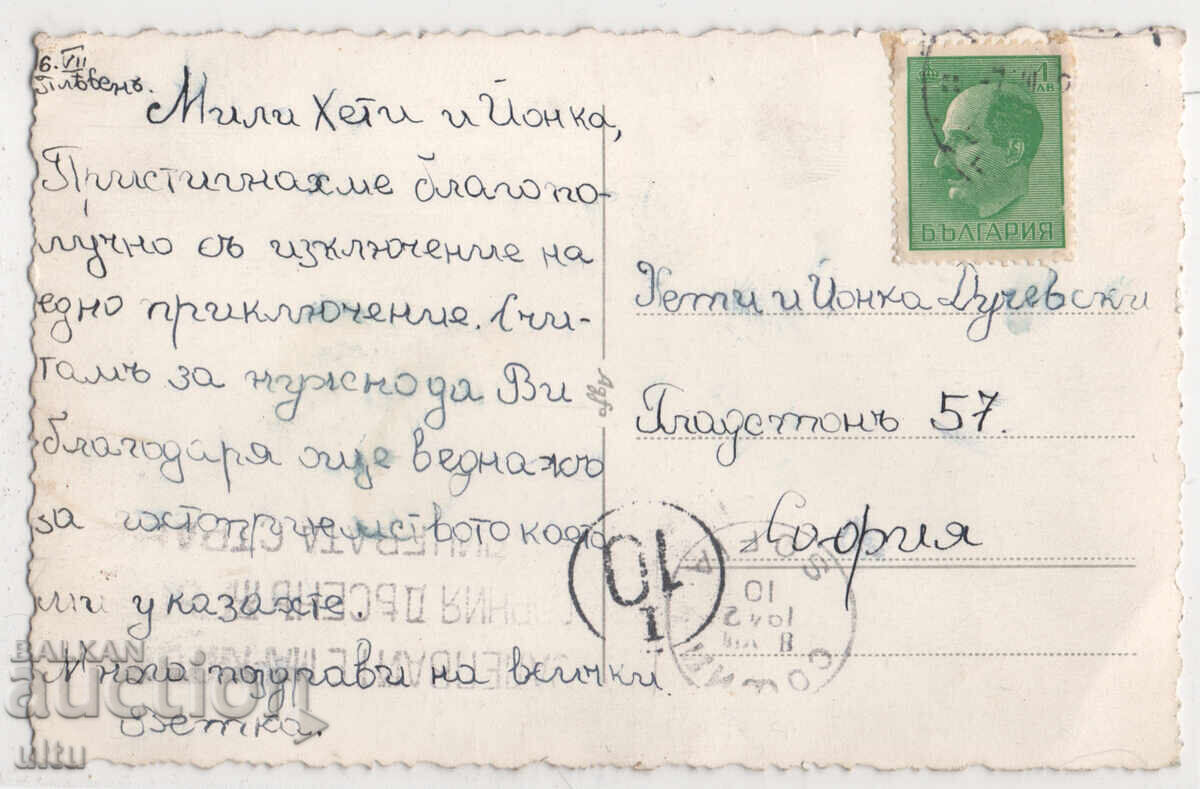 6. VII
Плѣвенъ.
Мили Хети и Йонка,
Пристигнахме благопо-
лучно съ изключение на
едно приключение. Счи-
тамъ за нужно да Ви
благодаря още веднажъ
за гостоприемството което
ми указахте.
Много поздрави на всички
Цветка.
1 ЛВ
БЪЛГАРИЯ
Хети и Йонка Дучевски
Гладстонъ 57.
София
Agfa
10
I
СОФИЯ
10
BALKAN
auction
ultu